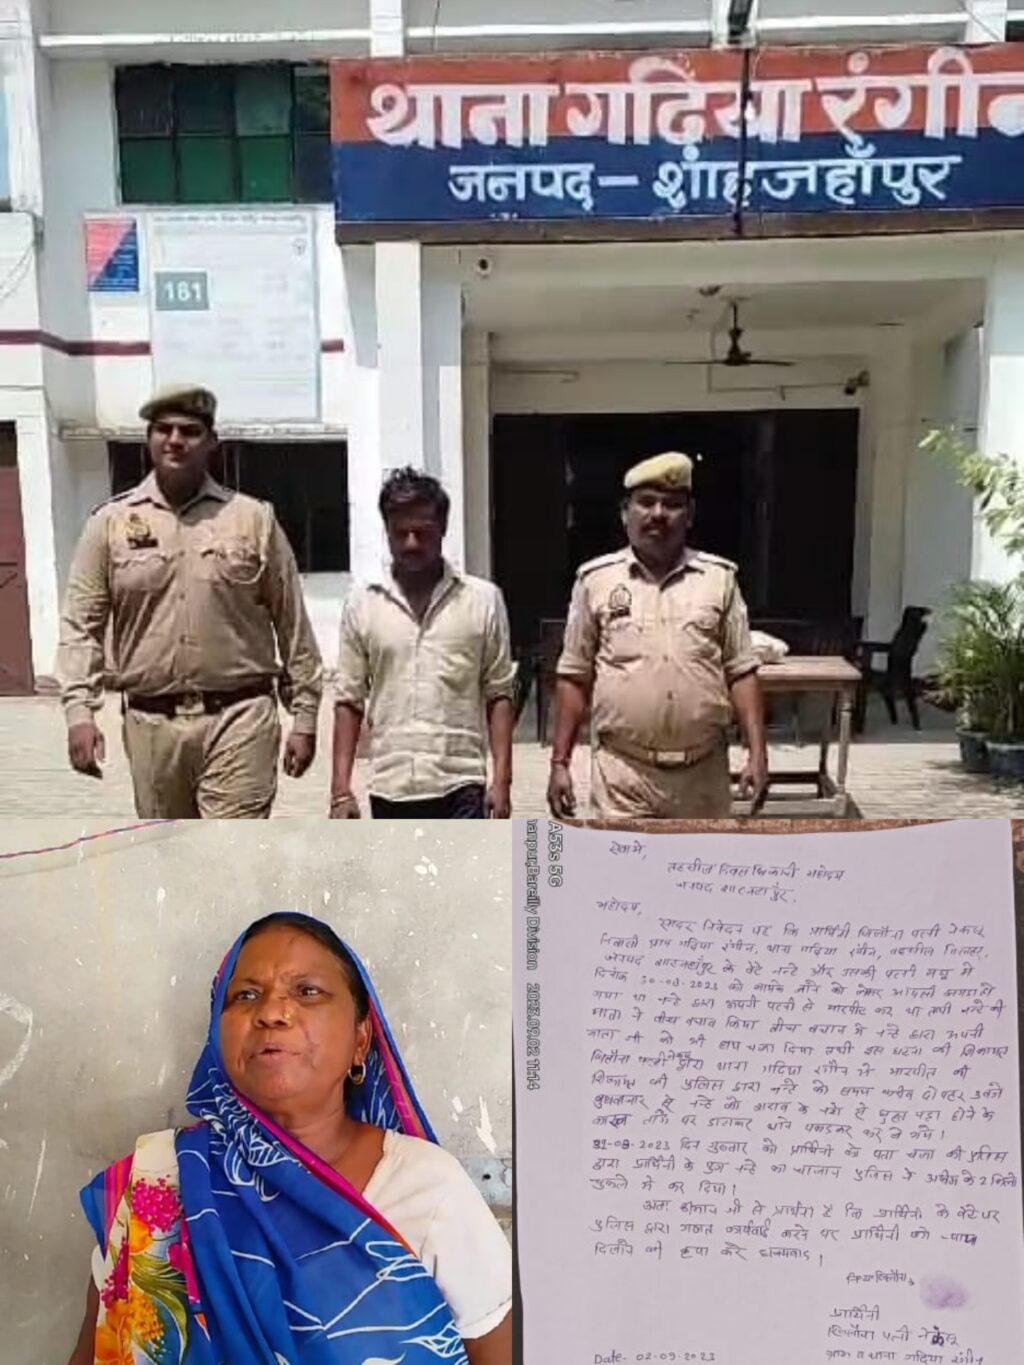 थाना गढ़िया रंगीन
जनपद – शाहजहाँपुर
181
A53s 5G
hanpur,Bareilly Division 2023.09.02 11:14
सेवा मे,
तहसील दिवस अधिकारी महोदय
जनपद शाहजहाँपुर,
महोदय,
सादर निवेदन यह कि प्रार्थिनी खिलौना पत्नी
निवासी ग्राम गढ़िया रंगीन, थाना गढ़िया रंगीन, तहसील तिलहर,
जनपद शाहजहाँपुर के बेटे नन्हे और उसकी पत्नी मधू मे
दिनांक 30-08-2023 को मायके जाने को लेकर आपसी झगडा हो
गया था नन्हे द्वारा अपनी पत्नी से मारपीट कर था तभी नन्हे की
माता ने बीच बचाव किया बीच बचाव मे नन्हे द्वारा अपनी
माता जी को भी थाप चला दिया तभी इस घटना की शिकायत
खिलौना पत्नी द्वारा थाना गढ़िया रंगीन मे मारपीट की
शिकायत की पुलिस द्वारा नन्हे को समय करीब दोपहर 3 बजे
बुधवार को नन्हे को शराब के नशे से घुत्त पड़ा होने के
कारण पर डालकर थाने पकडकर कर ले गये।
31-08-2023 दिन गुरुवार को प्रार्थिनी को पता चला की पुलिस
द्वारा प्रार्थिनी के पुत्र नन्हे का चालान पुलिस ने अफीम के 2 किलो
मे कर दिया।
अतः श्रीमान जी से प्रार्थना है कि प्रार्थिनी के बेटे पर
पुलिस द्वारा गलत कार्यवाई करने पर प्रार्थिनी को न्याय
दिलाने की कृपा करे धन्यवाद।
प्रार्थिनी
खिलौना पत्नी
ग्राम व थाना गढ़िया रंगीन
Date- 02-09-2023